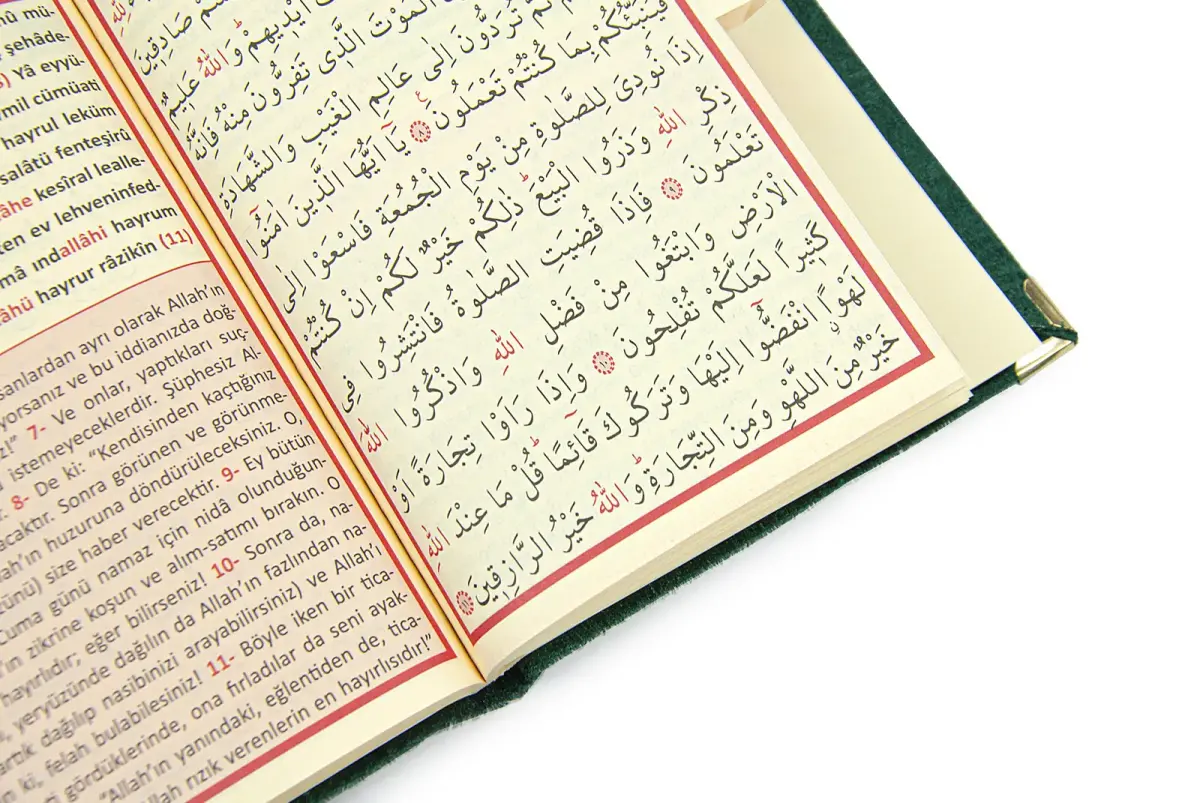 şehâde-
Yâ eyyü-
mil cümüati
hayrul leküm
salâtü fenteşirû
âhe kesîral lealle-
ten ev lehveninfed-
mâ ındallâhi hayrum
âhü hayrur râzikîn (11)
sanlardan ayrı olarak Allah’ın
yorsanız ve bu iddianızda doğ-
z!” 7- Ve onlar, yaptıkları suç-
istemeyeceklerdir. Şüphesiz Al-
8- De ki: “Kendisinden kaçtığınız
acaktır. Sonra görünen ve görünme-
lah’ın huzuruna döndürüleceksiniz. O,
ünü) size haber verecektir. 9- Ey bütün
Cuma günü namaz için nidâ olunduğun-
’ın zikrine koşun ve alım-satımı bırakın. O
hayırlıdır; eğer bilirseniz! 10- Sonra da, na-
yeryüzünde dağılın da Allah’ın fazlından na-
artık dağılıp nasibinizi arayabilirsiniz) ve Allah’ı
ki, felah bulabilesiniz! 11- Böyle iken bir tica-
gördüklerinde, ona fırladılar da seni ayak-
“Allah’ın yanındaki, eğlentiden de, tica-
llah rızık verenlerin en hayırlısıdır!”
صَادِق۪ينَ
اَيْد۪يهِمْۜ وَاللّٰهُ عَل۪يمٌ
الْمَوْتَ الَّذ۪ي تَفِرُّونَ مِنْهُ فَاِنَّهُ
تُرَدُّونَ اِلٰى عَالِمِ الْغَيْبِ وَالشَّهَادَةِ
فَيُنَبِّئُكُمْ بِمَا كُنْتُمْ تَعْمَلُونَ ٨ يَٓا اَيُّهَا الَّذ۪ينَ اٰمَنُٓوا
اِذَا نُودِيَ لِلصَّلٰوةِ مِنْ يَوْمِ الْجُمُعَةِ فَاسْعَوْا اِلٰى
ذِكْرِ اللّٰهِ وَذَرُوا الْبَيْعَۜ ذٰلِكُمْ خَيْرٌ لَكُمْ اِنْ كُنْتُمْ
تَعْلَمُونَ ٩ فَاِذَا قُضِيَتِ الصَّلٰوةُ فَانْتَشِرُوا فِي
الْاَرْضِ وَابْتَغُوا مِنْ فَضْلِ اللّٰهِ وَاذْكُرُوا اللّٰهَ
كَث۪يرًا لَعَلَّكُمْ تُفْلِحُونَ ١٠ وَاِذَا رَاَوْا تِجَارَةً اَوْ
لَهْوًاۨ انْفَضُّٓوا اِلَيْهَا وَتَرَكُوكَ قَٓائِمًاۜ قُلْ مَا عِنْدَ اللّٰهِ
خَيْرٌ مِنَ اللَّهْوِ وَمِنَ التِّجَارَةِۜ وَاللّٰهُ خَيْرُ الرَّازِق۪ينَ ١١